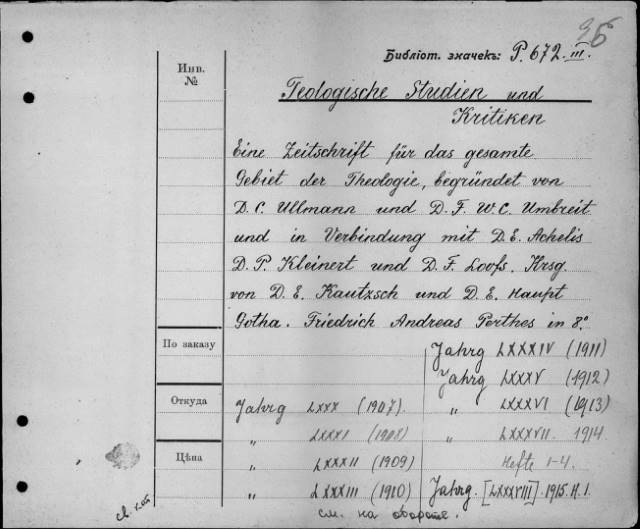 36
Библіот. значекъ: P. 672. III.
Инв.
№
Teologische Studien und
Kritiken
Eine Zeitschrift für das gesamte
Gebiet der Theologie, begründet von
D. C. Ullmann und D. F. W. C. Umbreit
und in Verbindung mit D. E. Achelis
D. P. Kleinert und D. F. Loofs. Hrsg.
von D. E. Kautzsch und D. E. Haupt
Gotha. Friedrich Andreas Perthes in 8.°
По заказу
Jahrg LXXXIV (1911)
Jahrg LXXXV (1912)
Откуда
Jahrg LXXX (1907).
„ LXXXVI (1913)
„ LXXXI (1908)
„ LXXXVII. 1914.
Цѣна
„ LXXXII (1909)
Hefte 1-4.
„ LXXXIII (1910)
Jahrg. [LXXXVIII]. 1915. H. 1.
св. кат
см. на обороте.